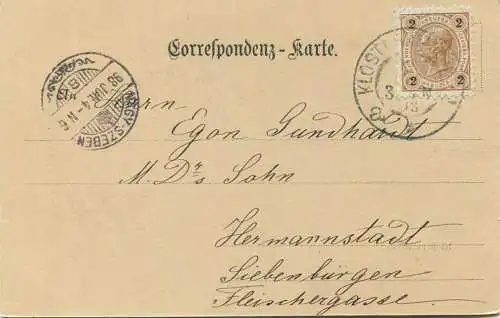 Correspondenz-Karte.
2 2
2 2
KLOST
NAGY-SZEBEN
98 JUN. 4 - N. 6
Herrn
Egon Gundhardt
M. Drs Sohn
Hermannstadt
Siebenbürgen
Fleischergasse.